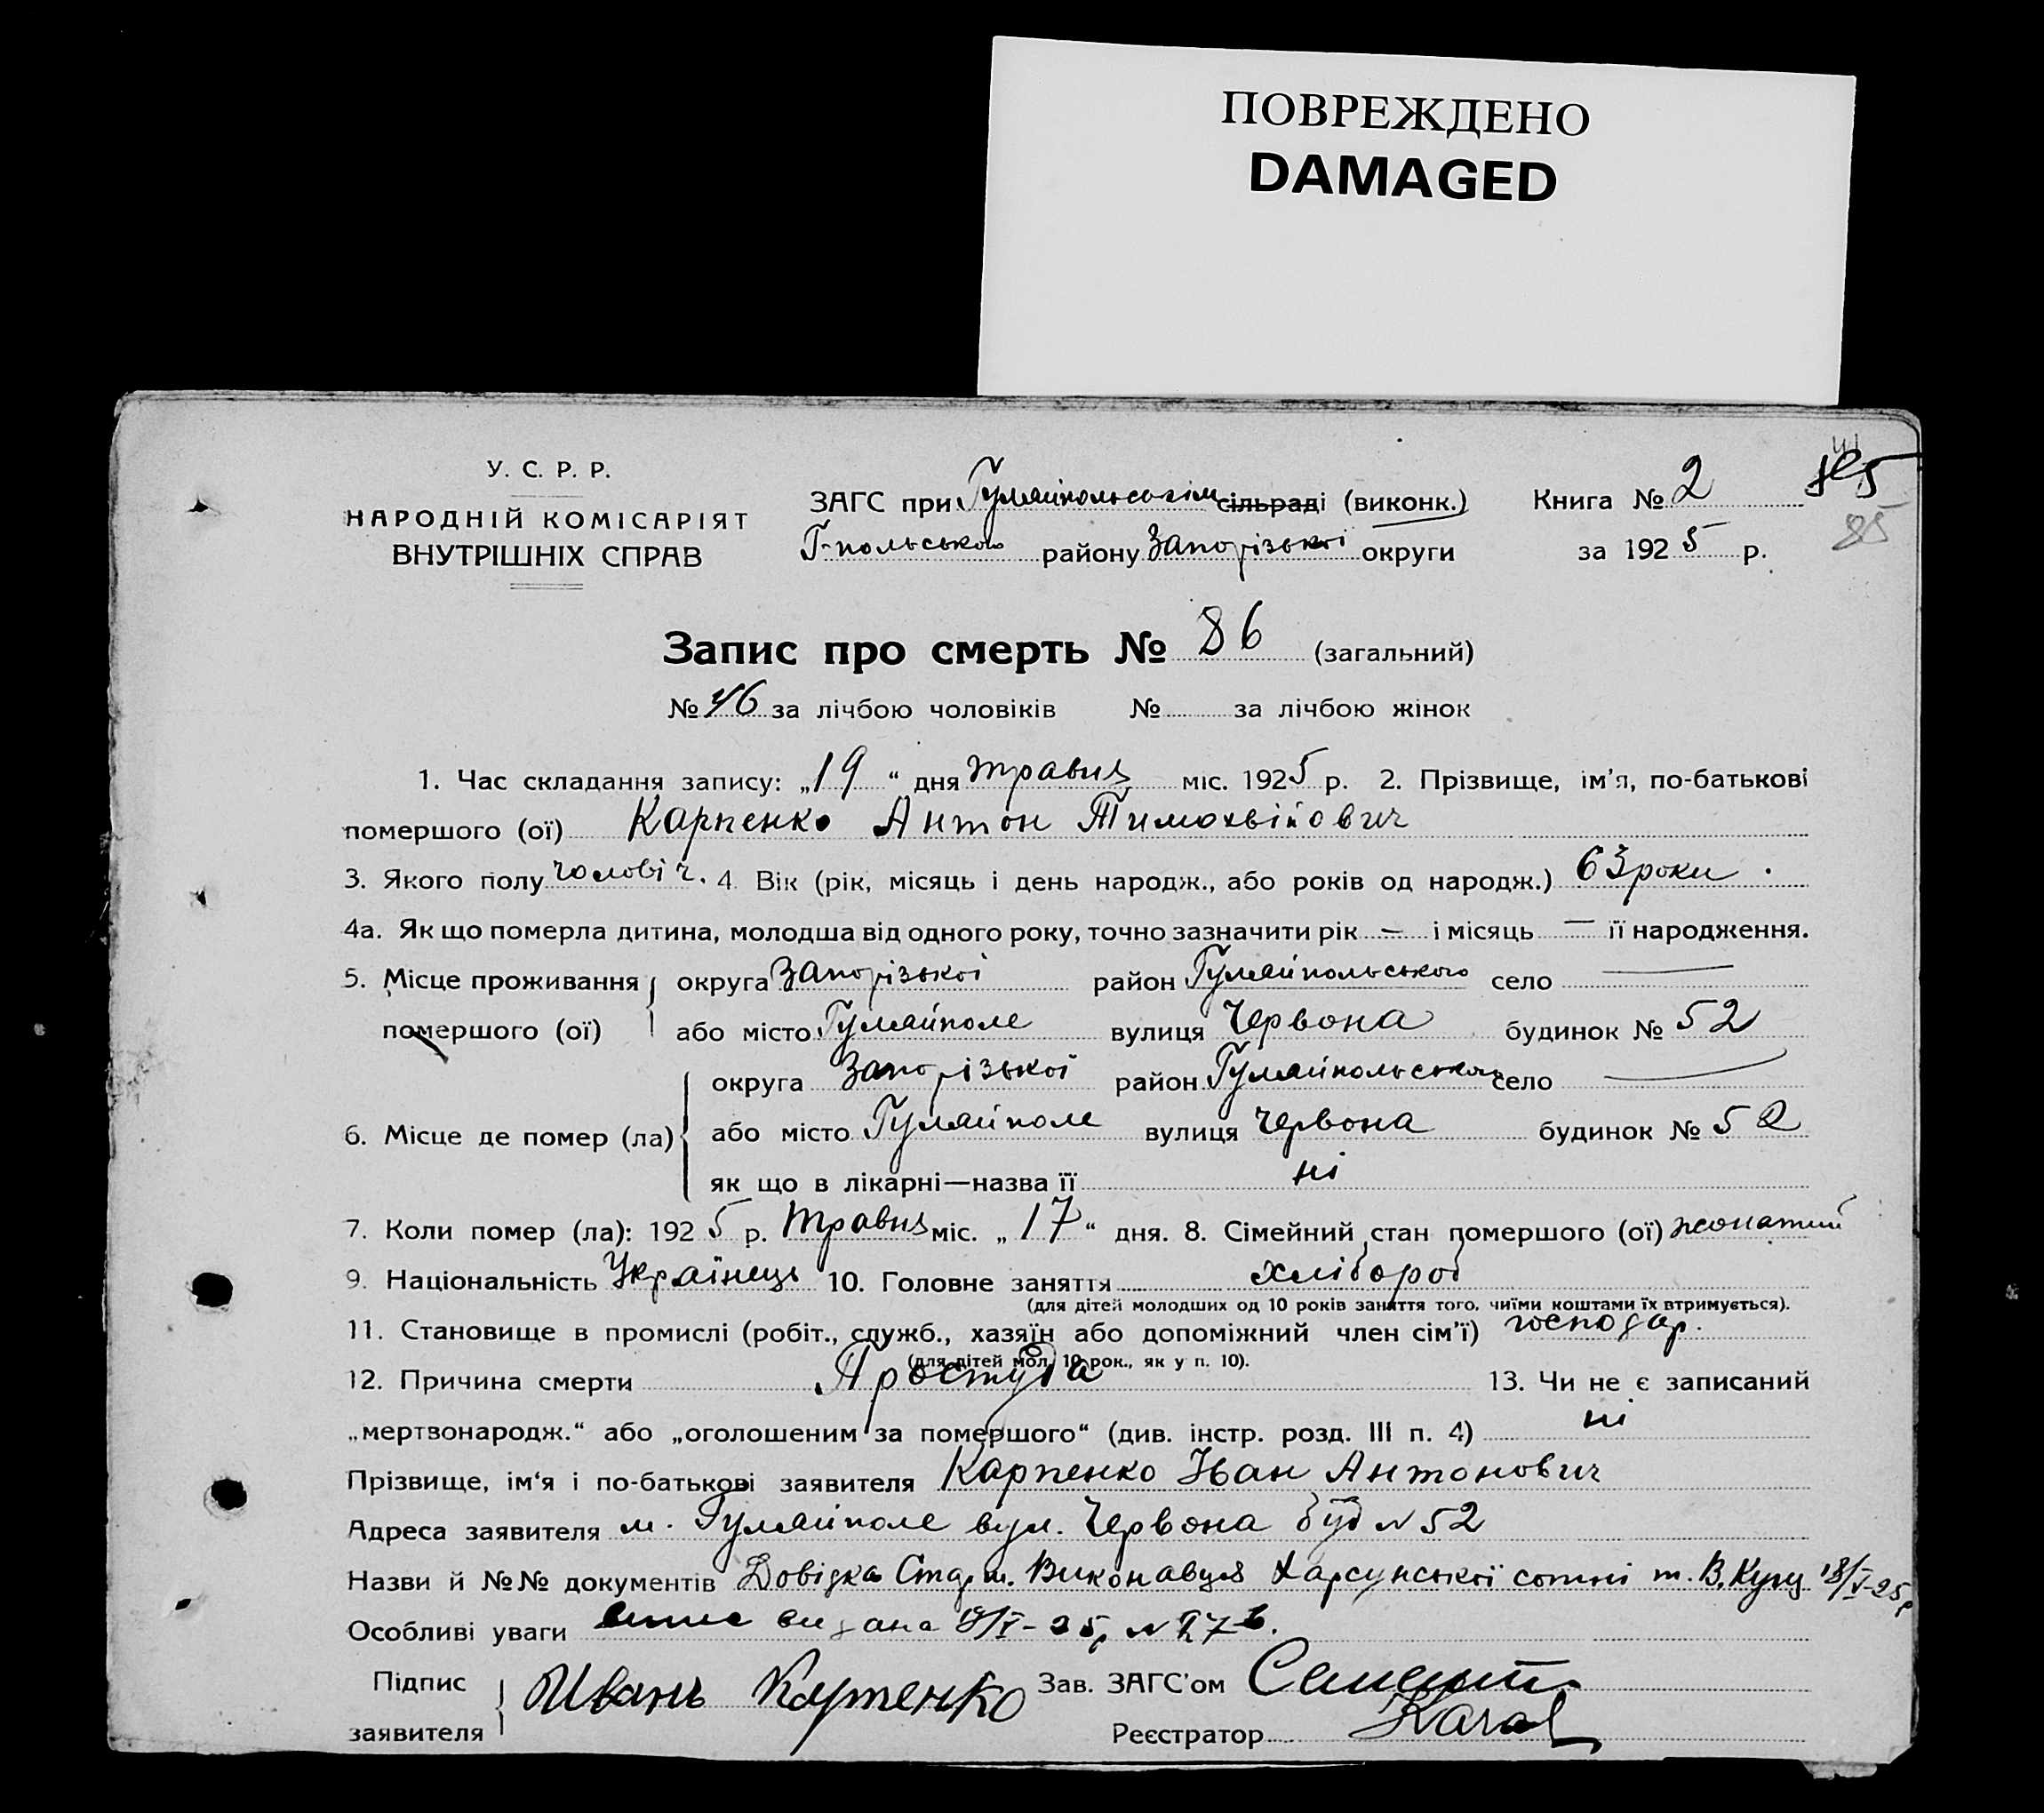 ПОВРЕЖДЕНО
DAMAGED
У. С. Р. Р.
НАРОДНІЙ КОМІСАРІЯТ
ВНУТРІШНІХ СПРАВ
ЗАГС при Гуляйпольськім сільраді (виконк.)
Г-польського району Запорізької округи
Книга № 2
за 1925 р.
85
Запис про смерть № 86 (загальний)
№ 46 за лічбою чоловіків № за лічбою жінок
1. Час складання запису: „19“ дня травня міс. 1925 р. 2. Прізвище, ім'я, по-батькові
помершого (ої) Карпенко Антон Тимохвійович
3. Якого полу чоловіч. 4 Вік (рік, місяць і день народж., або років од народж.) 63 роки.
4а. Як що померла дитина, молодша від одного року, точно зазначити рік — і місяць — її народження.
5. Місце проживання округа Запорізької район Гуляйпольського село —
помершого (ої) або місто Гуляйполе вулиця Червона будинок № 52
округа Запорізької район Гуляйпольського село —
6. Місце де помер (ла) або місто Гуляйполе вулиця Червона будинок № 52
як що в лікарні—назва її ні
7. Коли помер (ла): 1925 р. травня міс. „17“ дня. 8. Сімейний стан помершого (ої) жонатий
9. Національність Українець 10. Головне заняття хлібороб
(для дітей молодших од 10 років заняття того, чиїми коштами їх втримується).
11. Становище в промислі (робіт., служб., хазяїн або допоміжний член сім'ї) господар.
(для дітей мол. 10 рок., як у п. 10).
12. Причина смерти Простуда 13. Чи не є записаний
„мертвонародж.“ або „оголошеним за помершого“ (див. інстр. розд. III п. 4) ні
Прізвище, ім'я і по-батькові заявителя Карпенко Іван Антонович
Адреса заявителя м. Гуляйполе вул. Червона буд N 52
Назви й №№ документів Довідка Старш. Виконавця Харсунської сотні т. В. Куц 18/V-25р
Особливі уваги видана 19/V-25р N
Підпис заявителя Иванъ Карпенко Зав. ЗАГС'ом
Реєстратор